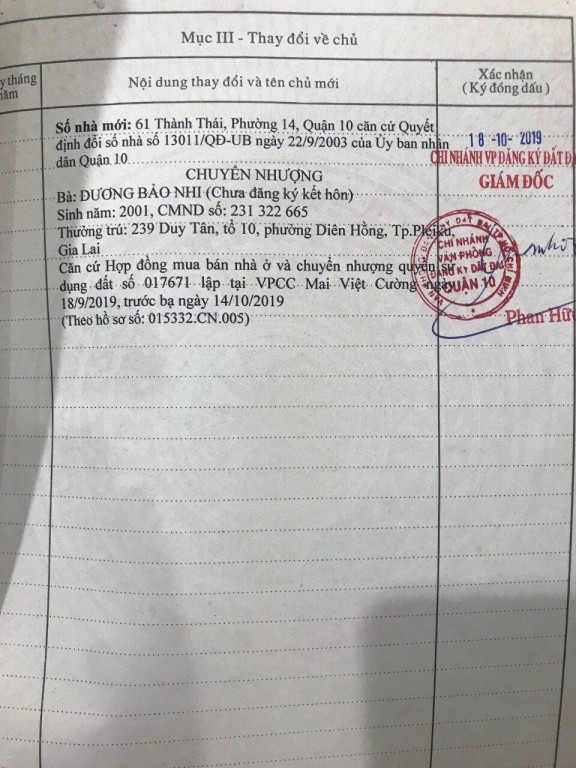 Mục III - Thay đổi về chủ
y tháng
năm
Nội dung thay đổi và tên chủ mới
Xác nhận
( Ký đóng dấu )
Số nhà mới: 61 Thành Thái, Phường 14, Quận 10 căn cứ Quyết
định đổi số nhà số 13011/QĐ-UB ngày 22/9/2003 của Ủy ban nhân
dân Quận 10
CHUYỂN NHƯỢNG
Bà: DƯƠNG BẢO NHI (Chưa đăng ký kết hôn)
Sinh năm: 2001, CMND số: 231 322 665
Thường trú: 239 Duy Tân, tổ 10, phường Diên Hồng, Tp.Pleiku,
Gia Lai
Căn cứ Hợp đồng mua bán nhà ở và chuyển nhượng quyền sử
dụng đất số 017671 lập tại VPCC Mai Việt Cường ngày
18/9/2019, trước bạ ngày 14/10/2019
(Theo hồ sơ số: 015332.CN.005)
18 -10- 2019
CHI NHÁNH VP ĐĂNG KÝ ĐẤT ĐA
GIÁM ĐỐC
CHI NHÁNH
VĂN PHÒNG
ĐĂNG KÝ ĐẤT ĐAI
QUẬN 10
Phan Hữu